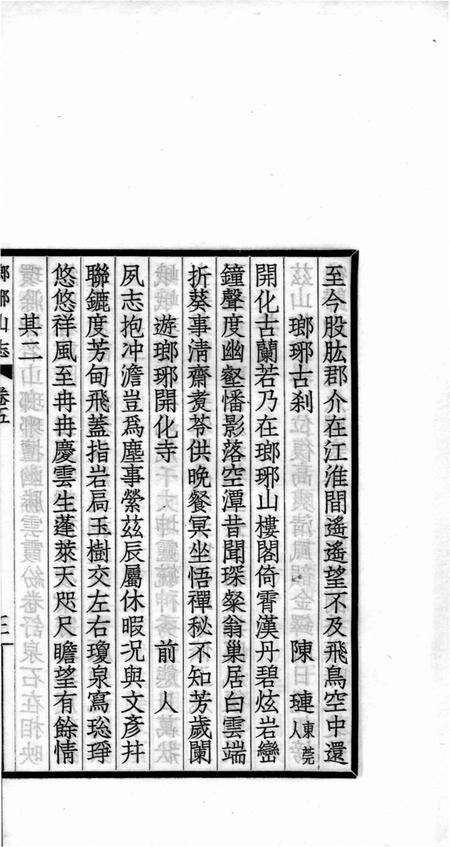 至今股肱郡介在江淮間遙遙望不及飛鳥空中還
瑯琊古刹 陳璉東莞人
開化古蘭若乃在瑯琊山樓閣倚霄漢丹碧炫岩巒
鐘聲度幽壑幡影落空潭昔聞琛粲翁巢居白雲端
折葵事清齋煑苓供晚餐冥坐悟禪秘不知芳歲闌
遊瑯琊開化寺 前人
夙志抱冲澹豈爲塵事縈玆辰屬休暇况與文彥幷
聯鑣度芳甸飛蓋指岩扃玉樹交左右瓊泉寫琮琤
悠悠祥風至冉冉慶雲生蓬萊天咫尺瞻望有餘情
其二
瑯琊山志 卷五 三